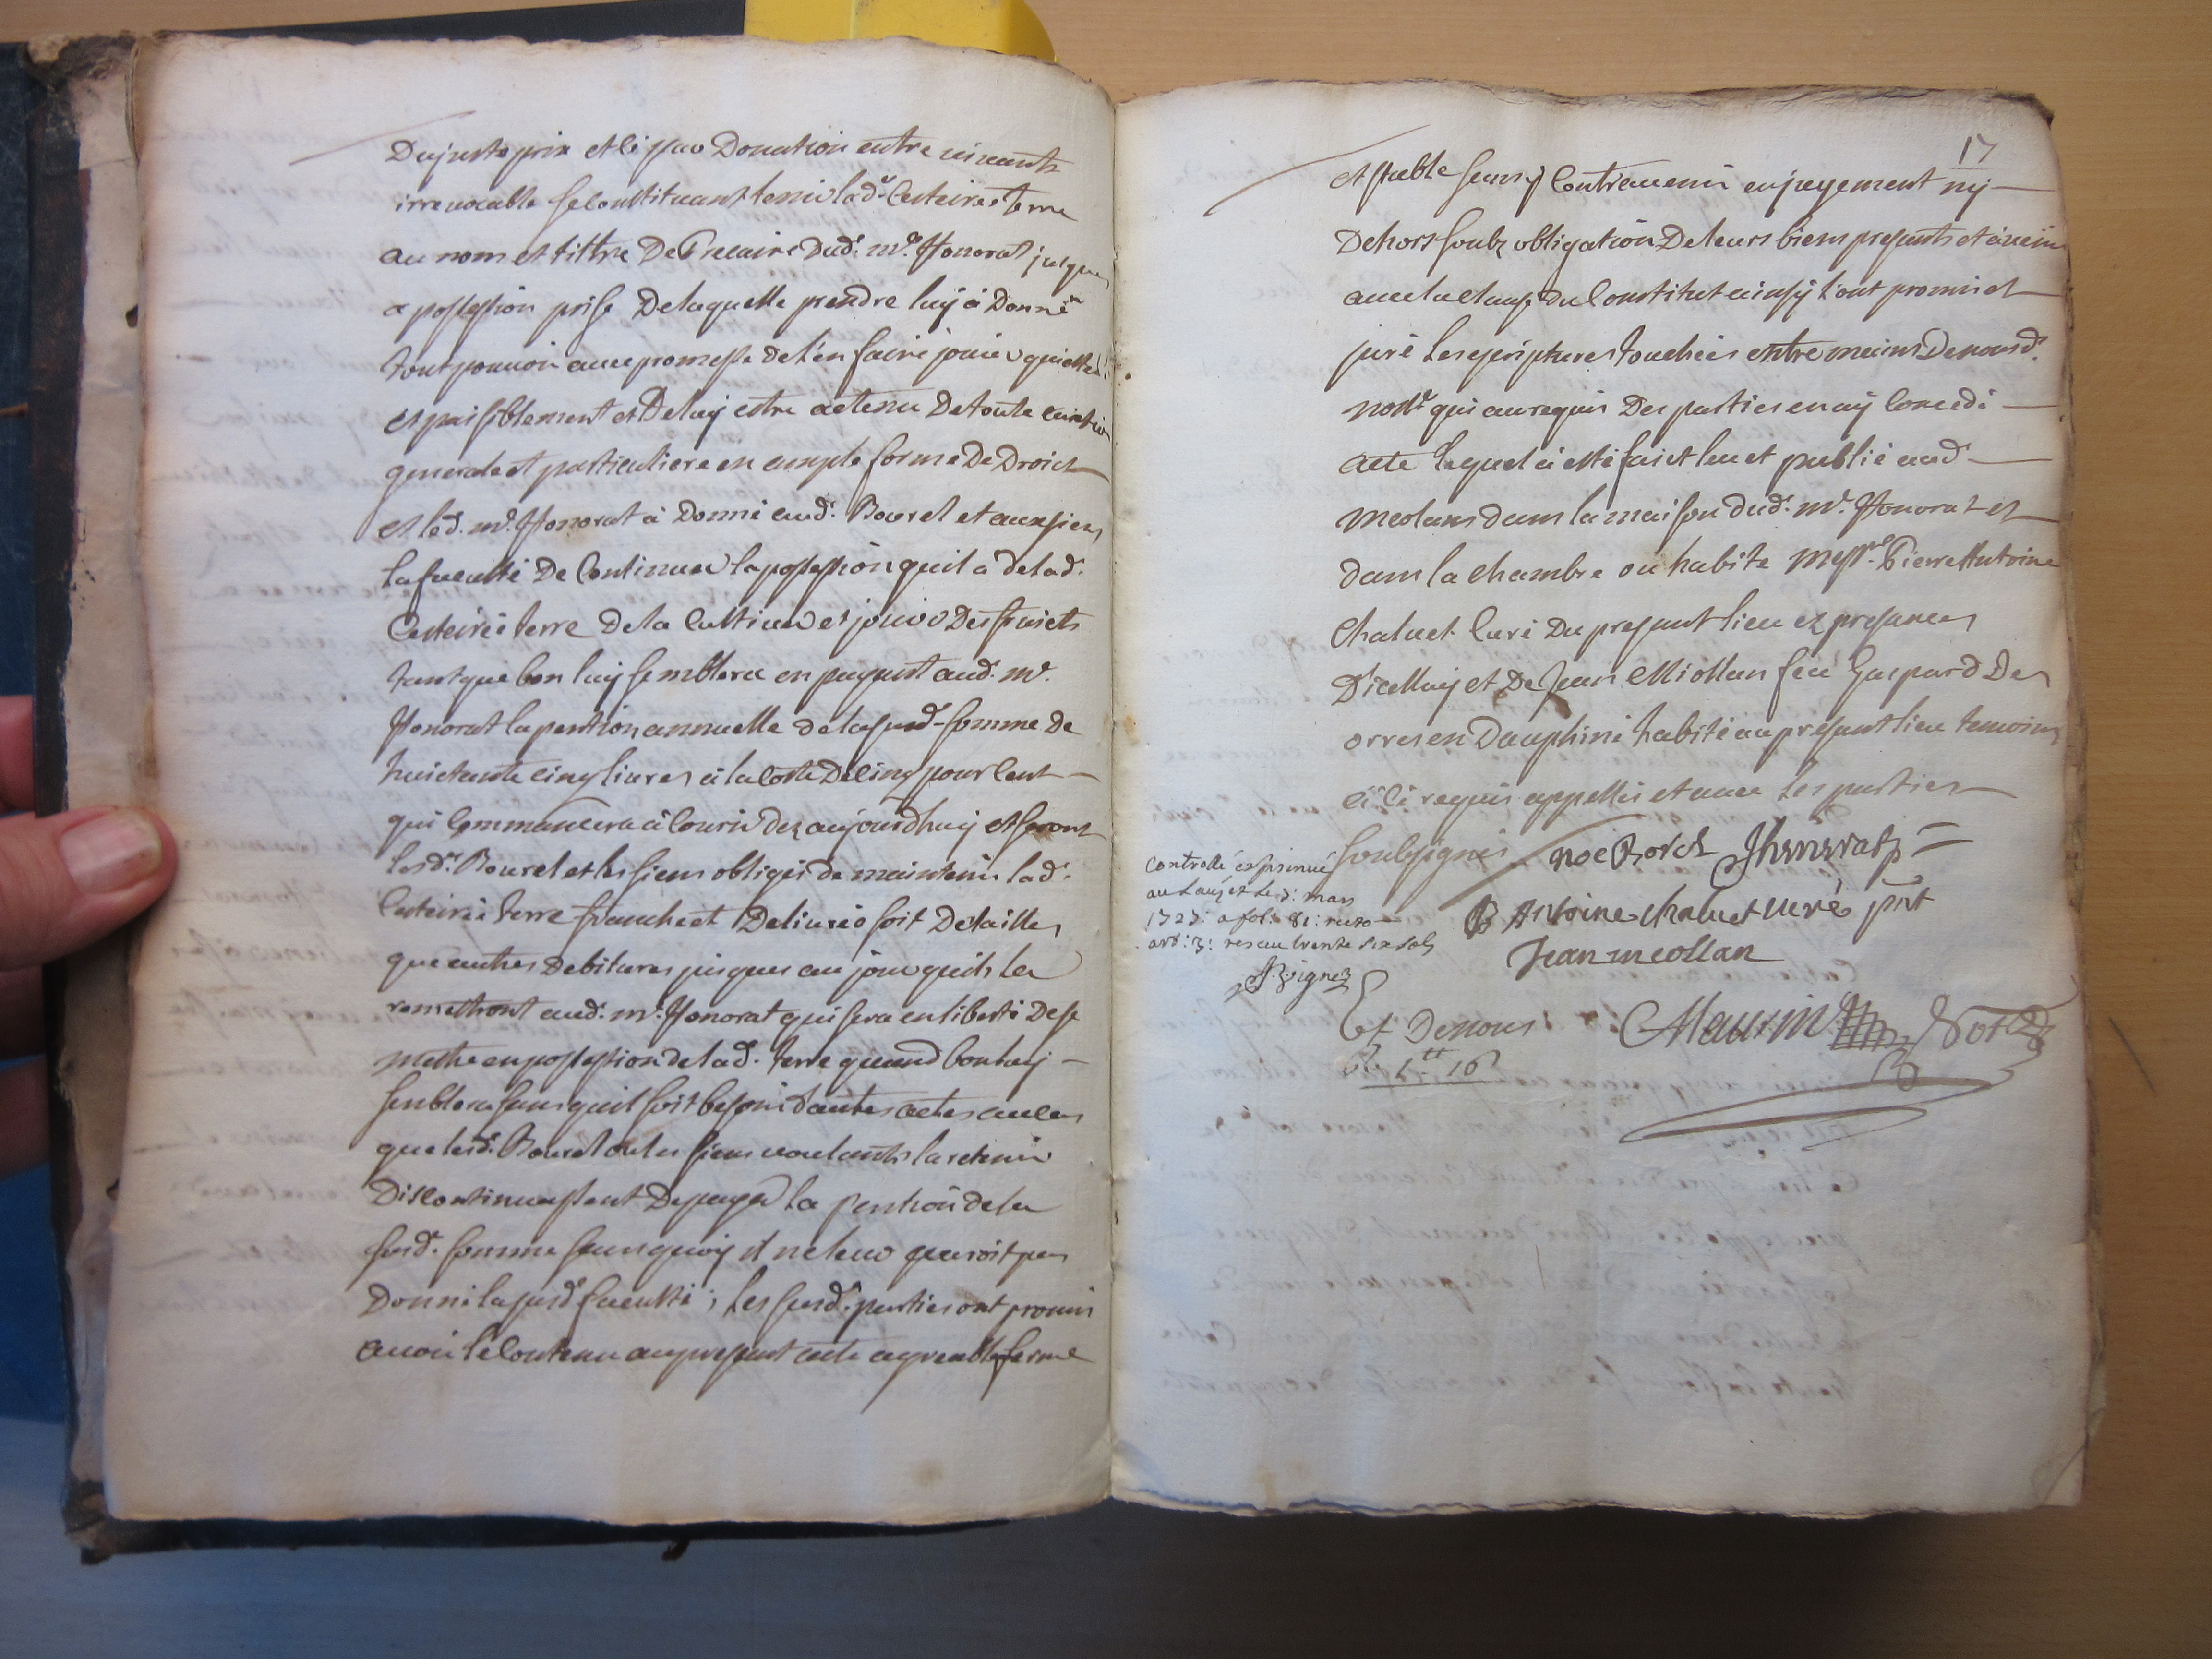 Du juste prix et ce par Donation entre vivants
irrevocable se constituant tenir lad.e Costeirée terre
au nom et tittre De Precaire Dud. m.e Honorat jusques
a possession prise De laquelle prendre luy à Donné
tout pouvoir avec promesse de l'en faire jouir quittem.t
et paisiblement et De luy estre de tenu De toute eviction
generale et particuliere en ample forme De Droict
et led. m.e Honorat à Donné aud. Bourel et aux siens
la faculté De Continuer la possession qu'il a de lad.
Costeirée terre De la Cultiver et jouir Des fruicts
tant que bon luy semblera en payant aud. m.e
Honorat la pention annuelle de la susd. somme De
huictante cinq livres à la Cotte De cinq pour Cent
qui Commancera à Courir dez aujourdhuy et seront
lesd. Bourel et les siens obligés de maintenir lad.
Costeirée terre franche et Delivrée soit De tailles
que autres Debitures jusques au jour quils la
remettront aud. m.e Honorat qui sera en liberté De se
mettre en possession de lad. terre quand bon luy
semblera sans quil soit besoin d'autres actes au cas
que lesd. Bourel ou les siens voulants la retenir
Discontinuassent De payer la pention de la
susd. somme sans quoy il ne leur auroit pas
Donné la susd. faculté; les susd. parties ont promis
avoir le Contenu au present acte agreable ferme
17
et stable sans y Contrevenir en jugement ny
Dehors soubz obligation De leurs biens presents et àvenir
avec la clause du Constitut ainsy l'ont promis et
juré les escriptures touchées entre mains De nousd.
not.re qui au requis Des parties en ay Concedé
acte lequel à esté faict leu et publié aud.
Meolans dans la maison dud. m.e Honorat et
dans la chambre ou habite Mess.re Pierre Antoine
Chaluet Curé Du present lieu ez presances
D'icelluy et De Jean Miollan feu Gaspard Des
orres en Dauphiné habité au present lieu temoins
à ce requis appellés et avec les parties
soubsignés noe Borel JHonorat
P Antoine chaluet curé pñt
Jean meollan
Controllé et insinué
au Lauzet le 3: mars
1727: a fol: 81: verso
art: 3: recau trente six sols
signez
Et De nous: Maurin Not.re
R. 1.tt 16